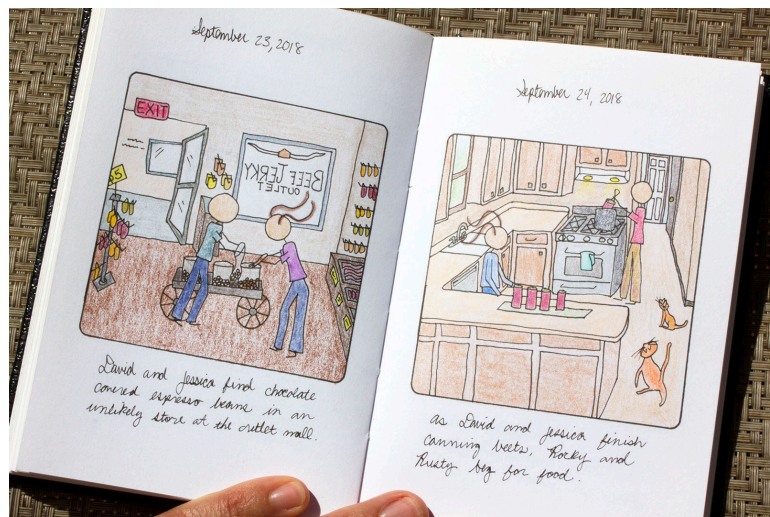 September 23, 2018
EXIT
BEEF JERKY
OUTLET
David and Jessica find chocolate
covered espresso beans in an
unlikely store at the outlet mall.
September 24, 2018
as David and Jessica finish
canning beets, Rocky and
Rusty beg for food.